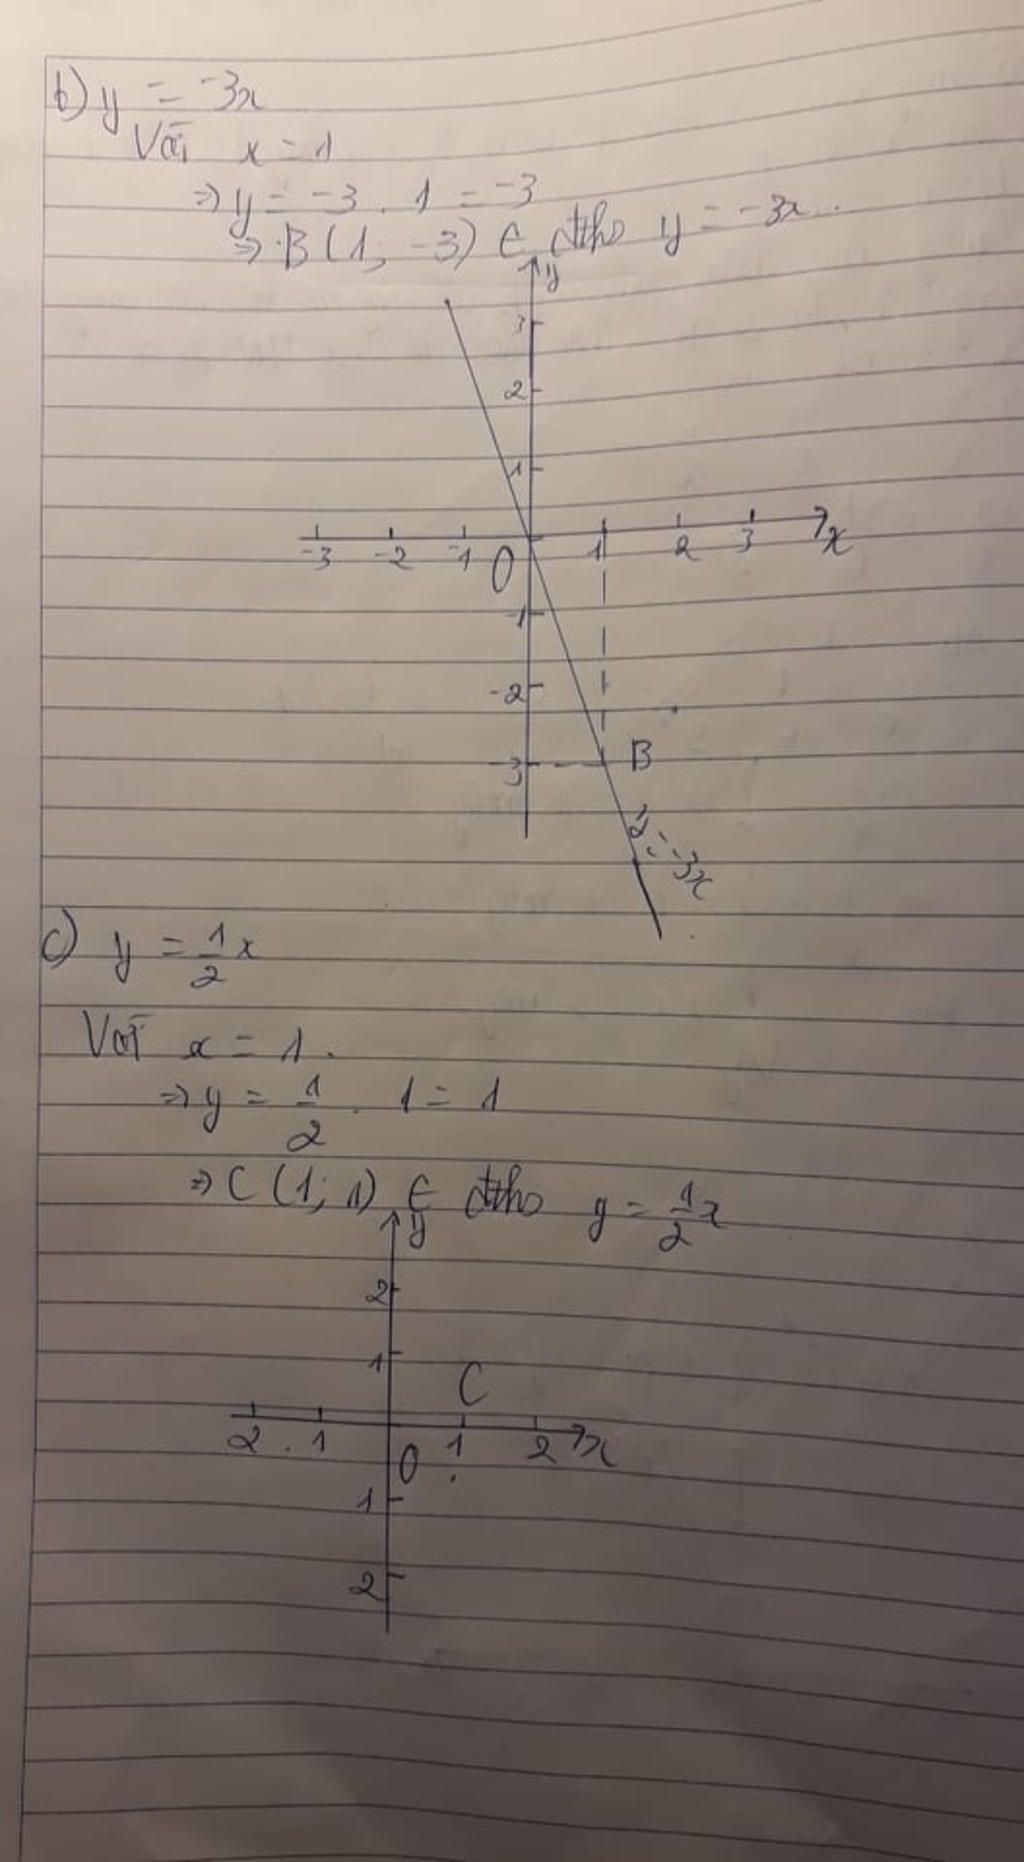 b) y = -3x
Với x = 1
⇒ y = -3 . 1 = -3
⇒ B (1; -3) ∈ đths y = -3x.
y
3
2
1
-3 -2 -1 O 1 2 3 x
-1
-2
-3 B
y = -3x
c) y = 1/2 x
Với x = 1.
⇒ y = 1/2 . 1 = 1
⇒ C (1; 1) ∈ đths y = 1/2 x
y
2
1
C
2 1 O 1 2 x
1
2